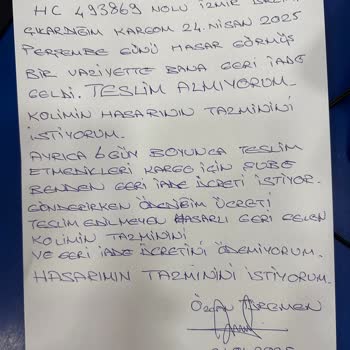 HC 493869 NOLU İZMİR
ÇIKARDIĞIM KARGOM 24. NİSAN 2025
PERŞEMBE GÜNÜ HASAR GÖRMÜŞ
BİR VAZİYETTE BANA GERİ İADE
GELDİ. TESLİM ALMIYORUM.
KOLİMİN HASARININ TAZMİNİNİ
İSTİYORUM.
AYRICA 6 GÜN BOYUNCA TESLİM
ETMEDİKLERİ KARGO İÇİN ŞUBE
BENDEN GERİ İADE ÜCRETİ İSTİYOR.
GÖNDERİRKEN ÖDEDİĞİM ÜCRETİ
TESLİM EDİLMEYEN HASARLI GERİ GELEN
KOLİMİN TAZMİNİNİ
VE GERİ İADE ÜCRETİNİ ÖDEMİYORUM.
HASARIMIN TAZMİNİNİ İSTİYORUM.